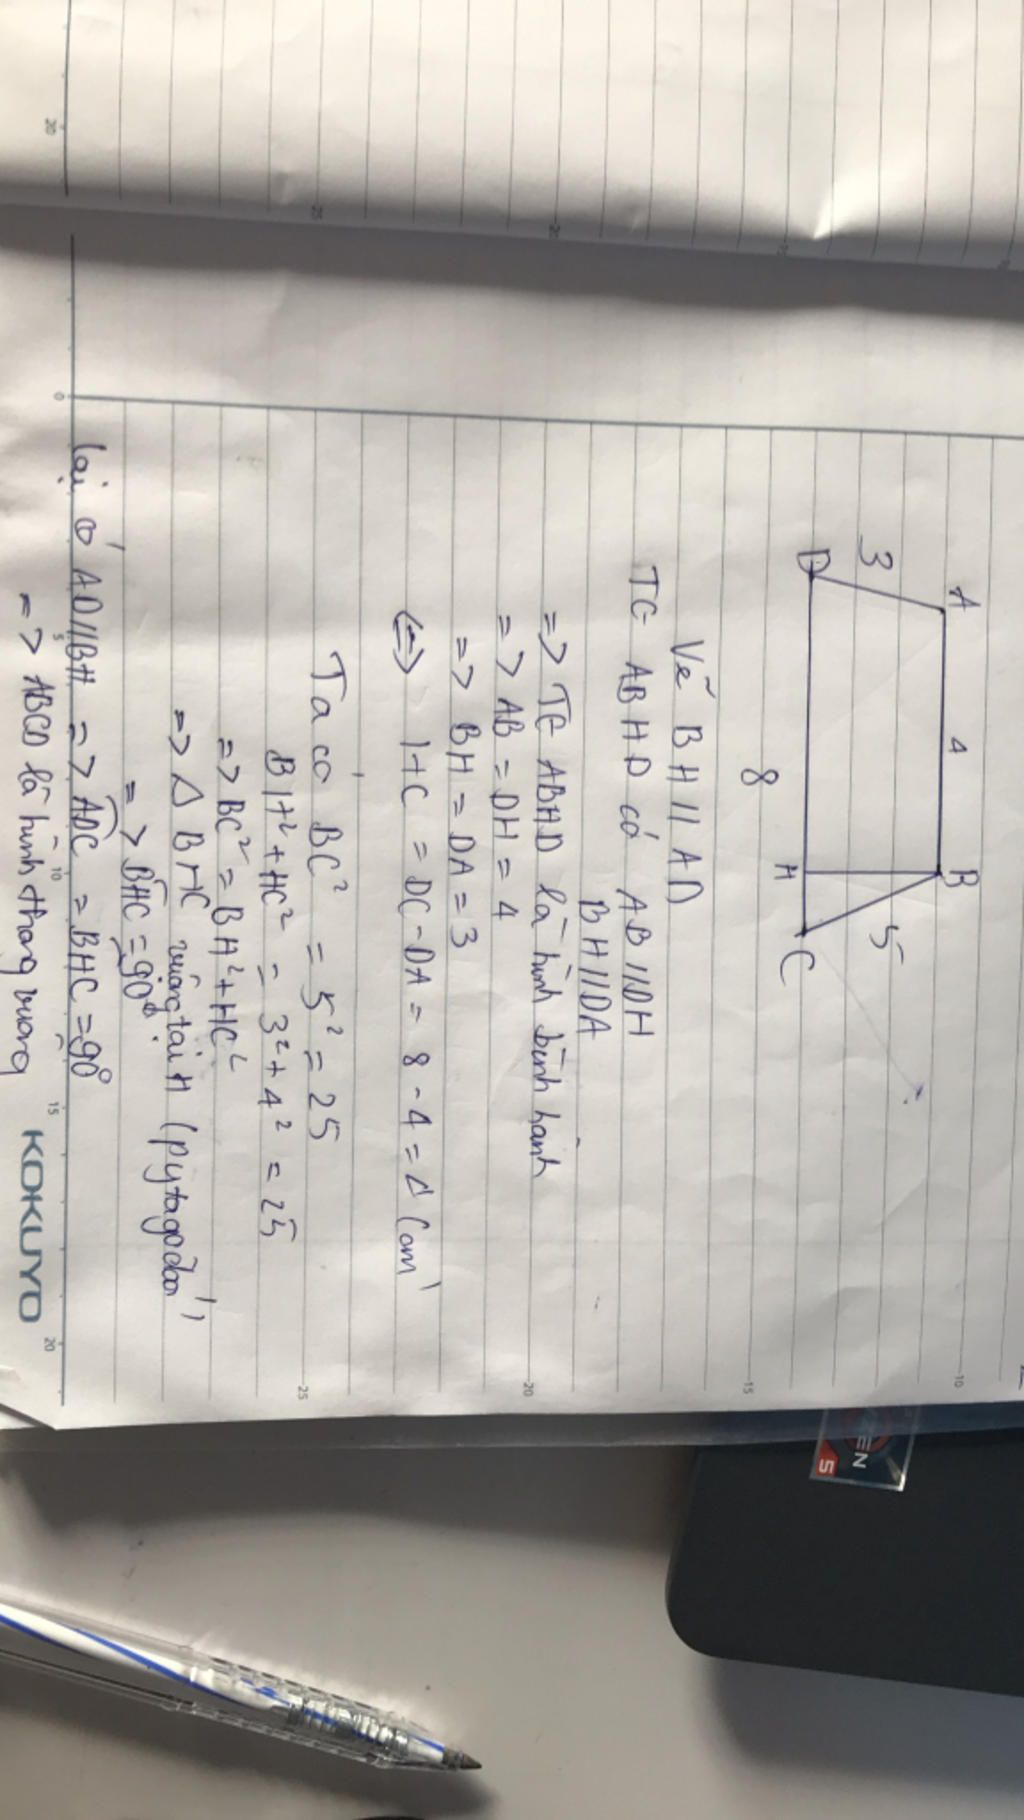 A 4 B
3 5
D H C
8
Vẽ BH // AD
TG ABHD có AB // DH
BH // DA
=> TG ABHD là hình bình hành
=> AB = DH = 4
=> BH = DA = 3
<=> HC = DC - DA = 8 - 4 = 4 (cm)
Ta có BC² = 5² = 25
BH² + HC² = 3² + 4² = 25
=> BC² = BH² + HC²
=> Δ BHC vuông tại H (pytago đảo)
=> BHC = 90°
Lại có AD // BH => ADC = BHC = 90°
=> ABCD là hình thang vuông
KOKUYO